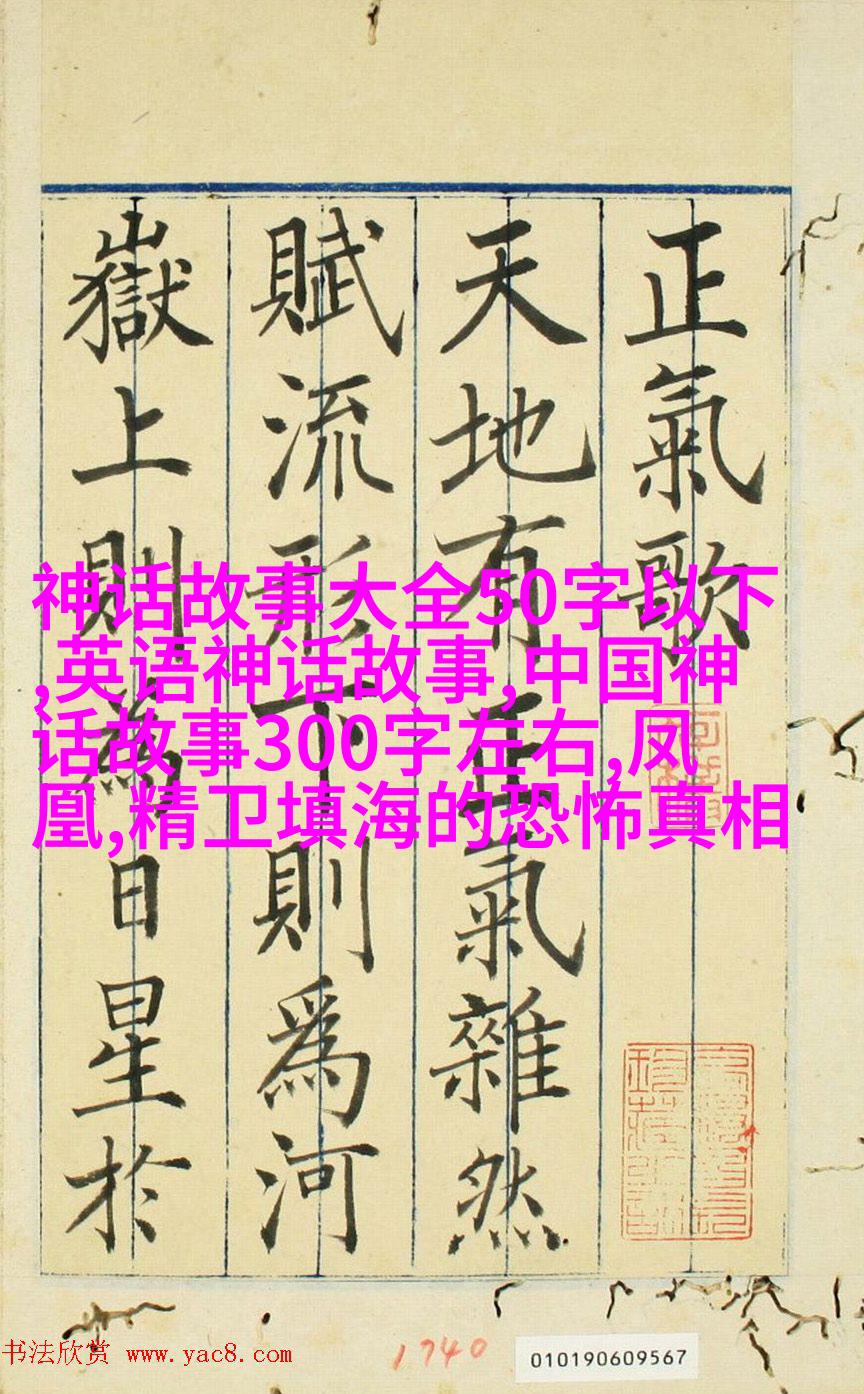 正氣歌
天地有正氣雜然
賦流形下則爲河
嶽上則爲日星於
神话故事大全50字以下
,英语神话故事,中国神
话故事300字左右,凤
凰,精卫填海的恐怖真相
书法欣赏 www.yac8.com
1740
010190609567